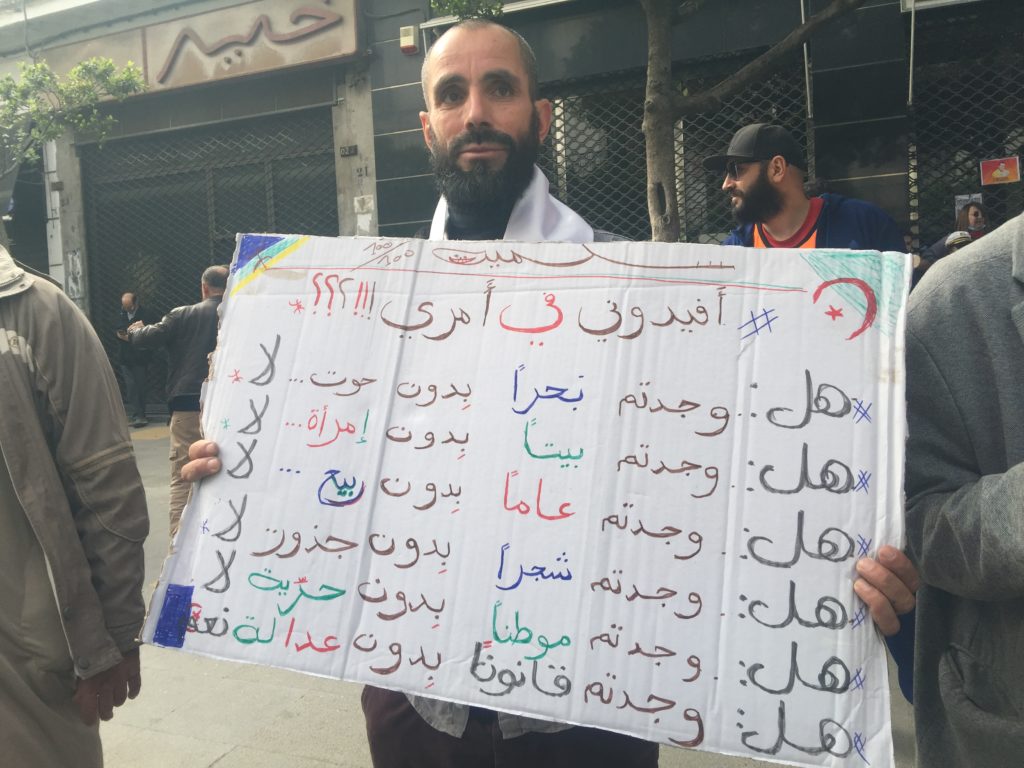 خبيه
سلمية 100/100
# أفيدوني في أمري !!!؟؟؟ *
# هل: .. وجدتم نحراً بِدون حوت ... لا *
# هل: .. وجدتم بيتاً بِدون إمرأة ... لا *
# هل: .. وجدتم عاماً بِدون ربيع ... لا
# هل: .. وجدتم شجراً بِدون جذور لا *
# هل: .. وجدتم موطناً بِدون حرّية لا
# هل: .. وجدتم قانوناً بِدون عدالة نعم